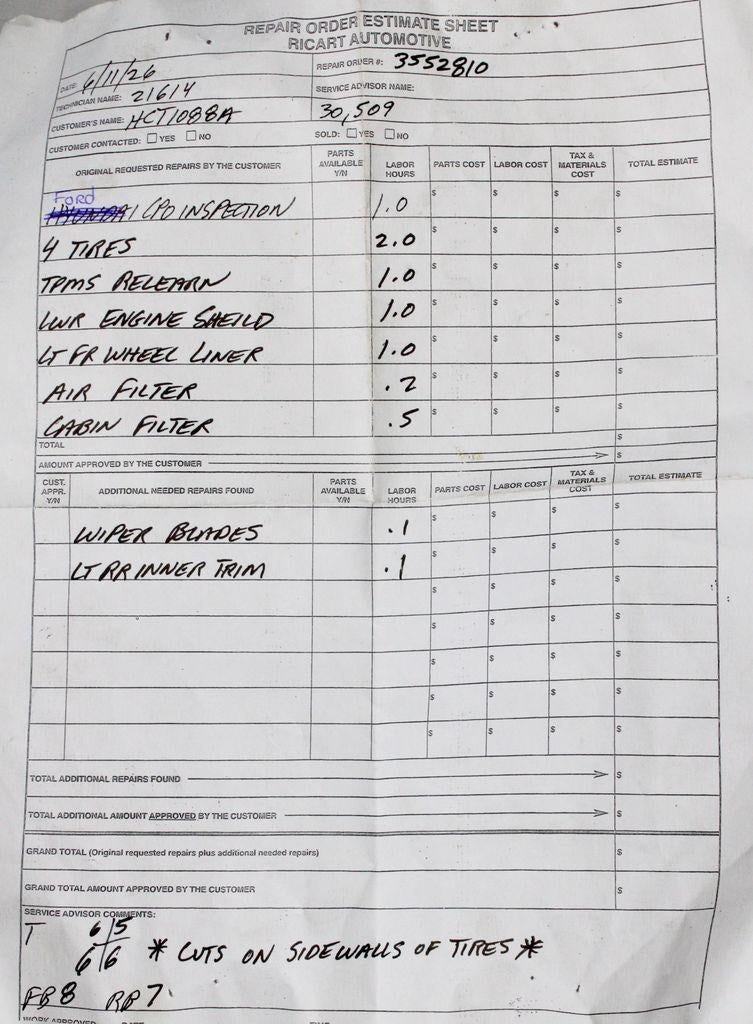 REPAIR ORDER ESTIMATE SHEET
RICART AUTOMOTIVE
DATE: 6/11/26 REPAIR ORDER #: 3552810
TECHNICIAN NAME: 21614 SERVICE ADVISOR NAME:
CUSTOMER'S NAME: HCT1088A 30,509
CUSTOMER CONTACTED: YES NO SOLD: YES NO
ORIGINAL REQUESTED REPAIRS BY THE CUSTOMER PARTS AVAILABLE Y/N LABOR HOURS PARTS COST LABOR COST TAX & MATERIALS COST TOTAL ESTIMATE
Ford
HYUNDAI CPO INSPECTION 1.0 $ $ $ $
4 TIRES 2.0 $ $ $ $
TPMS RELEARN 1.0 $ $ $ $
LWR ENGINE SHEILD 1.0 $ $ $ $
LT FR WHEEL LINER 1.0 $ $ $ $
AIR FILTER .2 $ $ $ $
CABIN FILTER .5 $ $ $ $
TOTAL $
AMOUNT APPROVED BY THE CUSTOMER $
CUST. APPR. Y/N ADDITIONAL NEEDED REPAIRS FOUND PARTS AVAILABLE Y/N LABOR HOURS PARTS COST LABOR COST TAX & MATERIALS COST TOTAL ESTIMATE
WIPER BLADES .1 $ $ $ $
LT RR INNER TRIM .1 $ $ $ $
$ $ $ $
$ $ $ $
$ $ $ $
$ $ $ $
$ $ $ $
TOTAL ADDITIONAL REPAIRS FOUND $
TOTAL ADDITIONAL AMOUNT APPROVED BY THE CUSTOMER $
GRAND TOTAL (Original requested repairs plus additional needed repairs) $
GRAND TOTAL AMOUNT APPROVED BY THE CUSTOMER $
SERVICE ADVISOR COMMENTS:
T 6|5
6|6 * CUTS ON SIDEWALLS OF TIRES *
FB 8 RB 7
WORK APPROVED DATE TIME